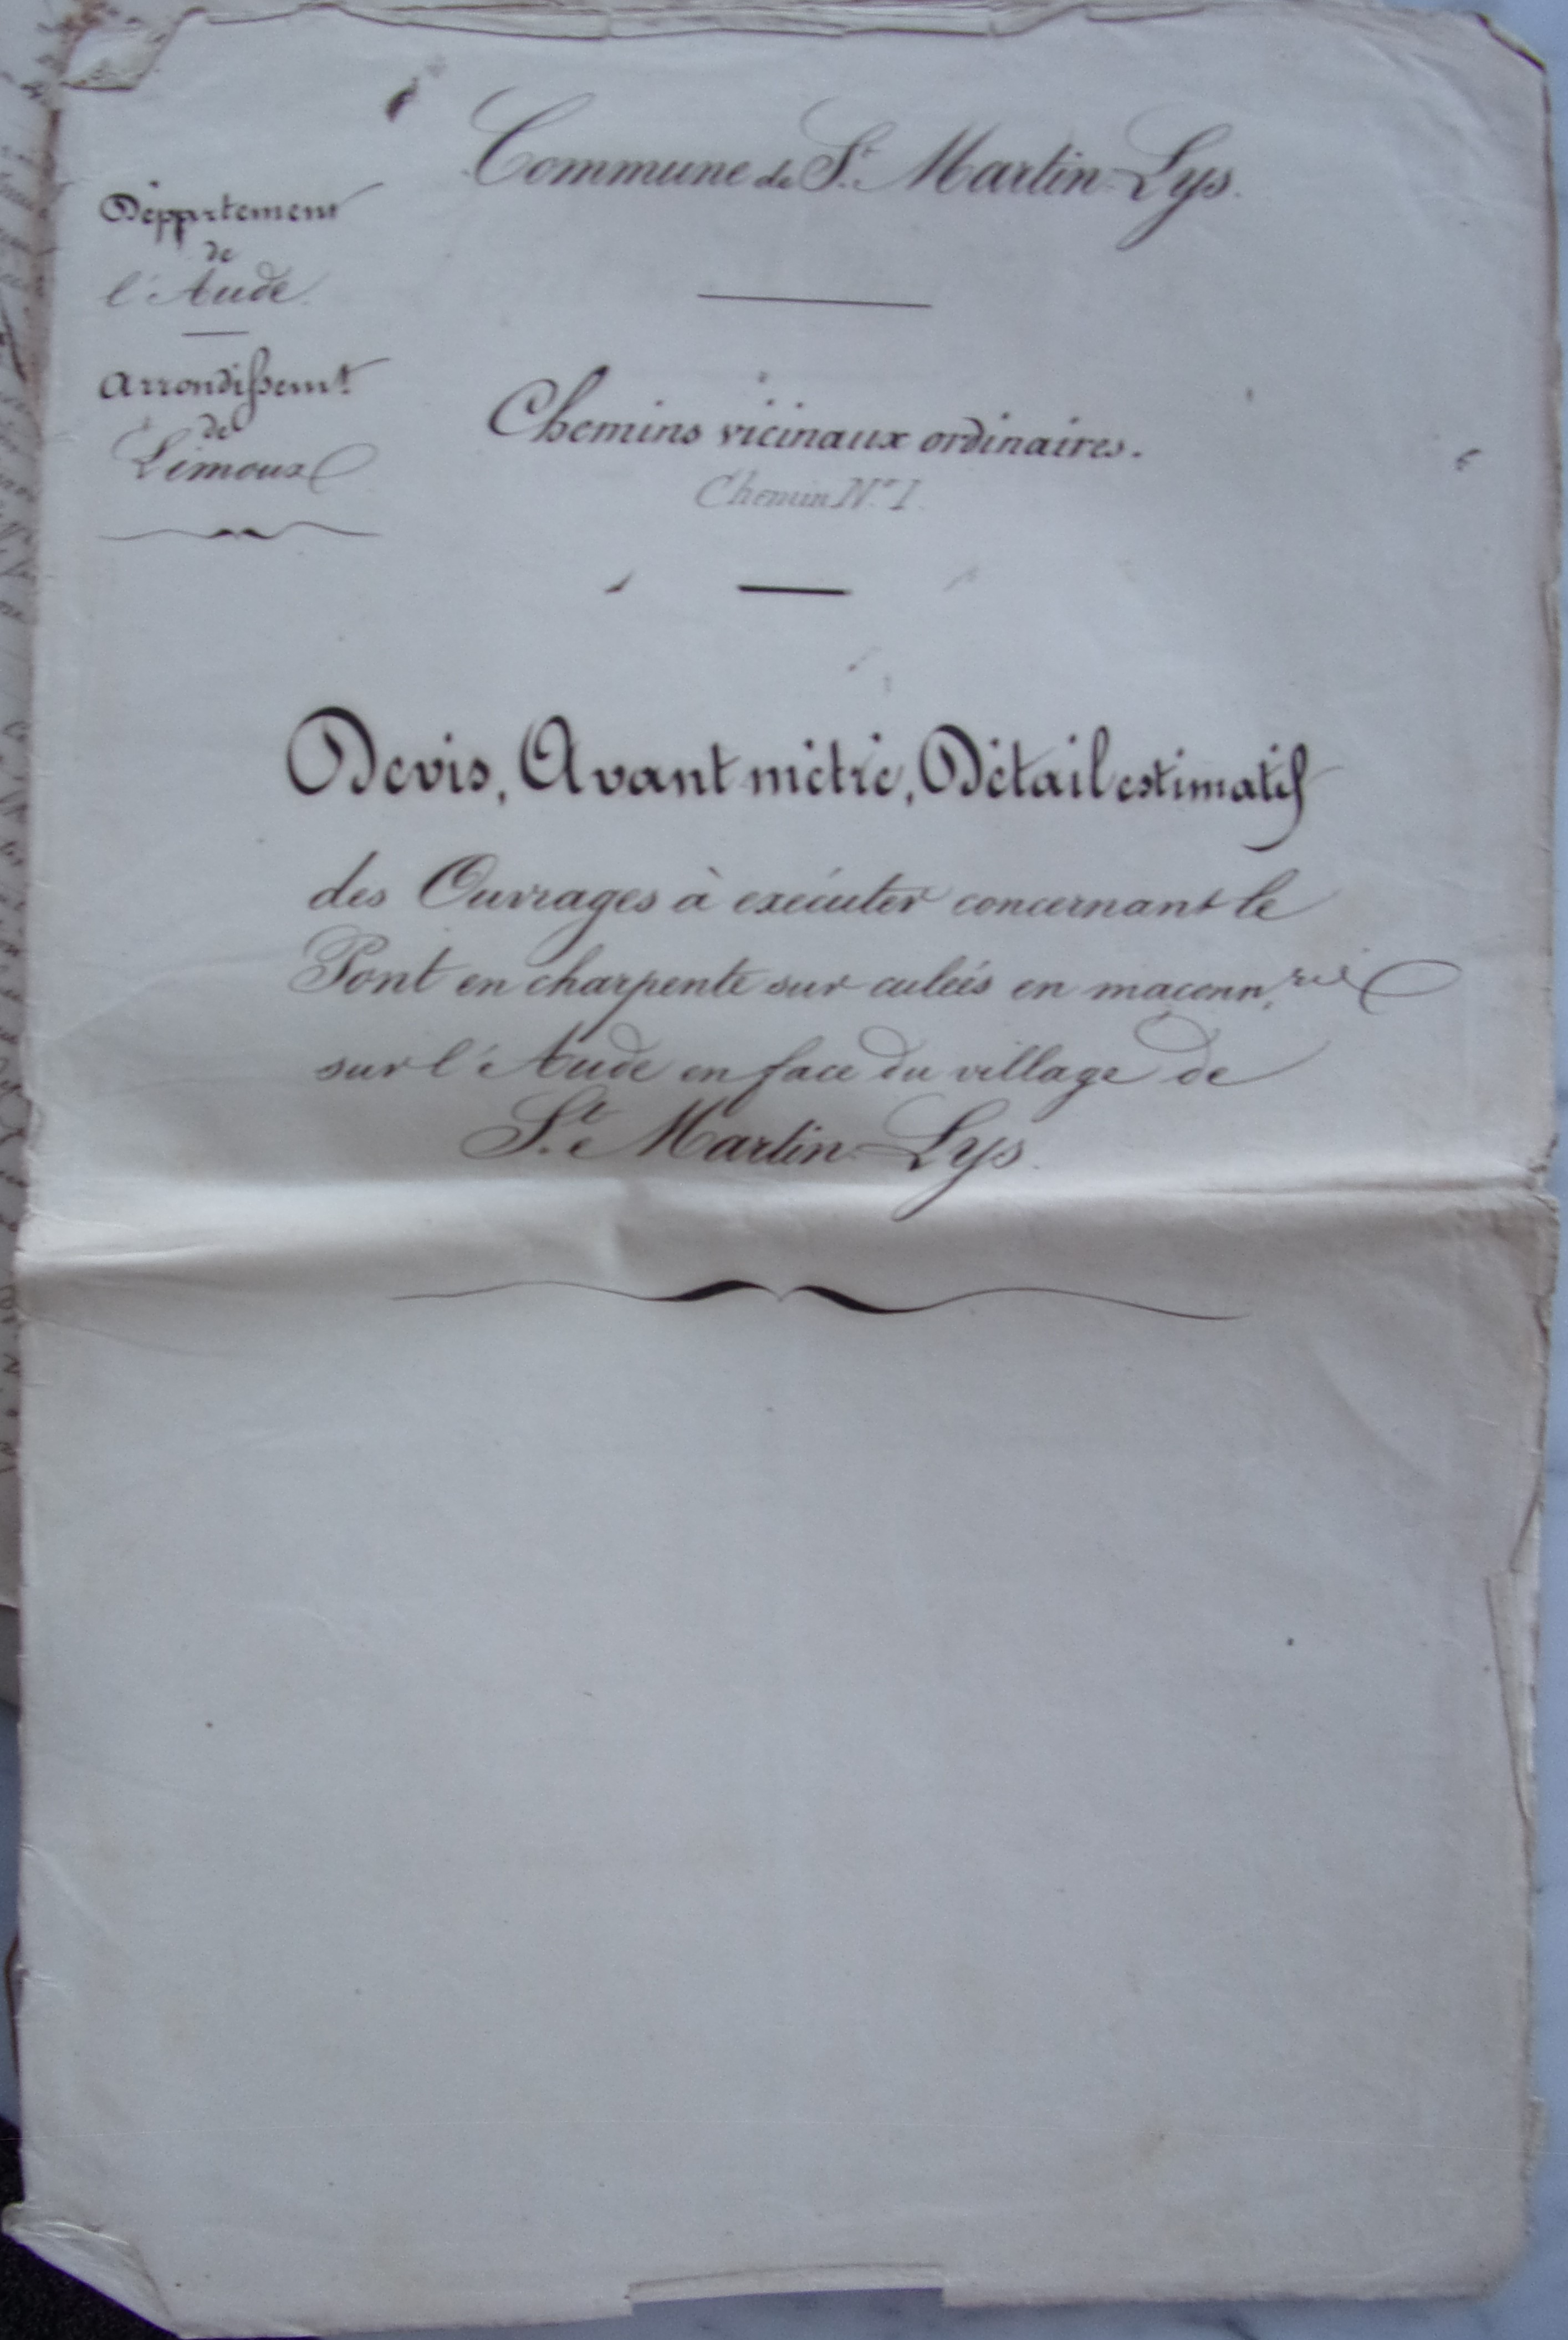 Commune de St. Martin-Lys.
Département
de
l'Aude.
Arrondissemt.
de
Limoux
Chemins vicinaux ordinaires.
Chemin No. 1.
Devis, Avant métré, Détail estimatif
des Ouvrages à exécuter concernant le
Pont en charpente sur culées en maçonn.rie
sur l'Aude en face du village de
St. Martin-Lys.